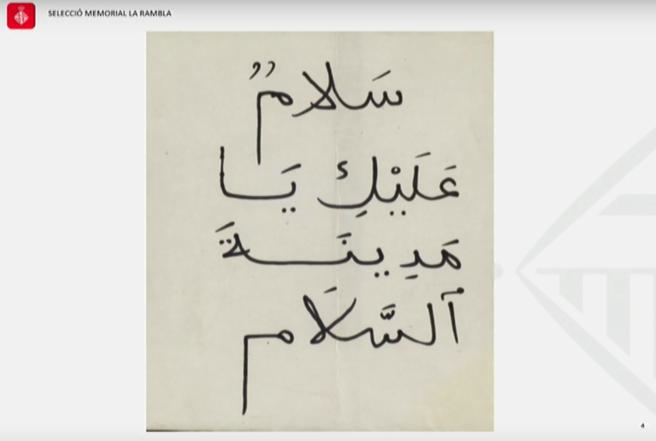 SELECCIÓ MEMORIAL LA RAMBLA
سَلامٌ
عَلَيْكِ يَا
مَدِينَةَ
ٱلسَّلَام
4